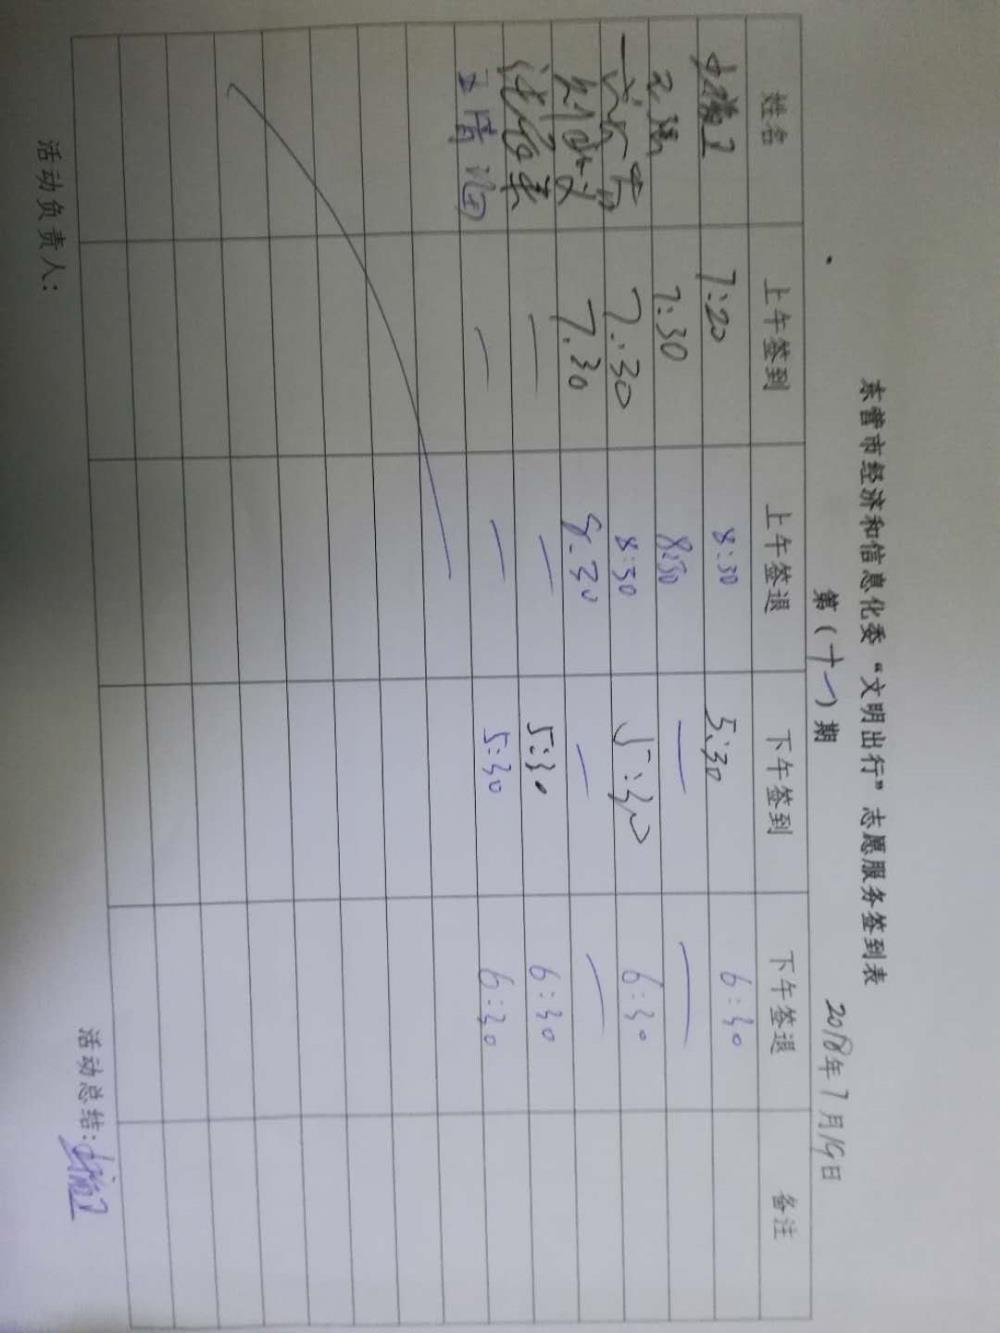 东营市经济和信息化委“文明出行”志愿服务签到表
第（十一）期 2018年7月19日
姓名 上午签到 上午签退 下午签到 下午签退 备注
7:20 8:30 5:30 6:30
王强 7:30 8:30 — —
7:30 8:30 5:30 6:30
7.30 8.30 — —
— — 5:30 6:30
— — 5:30 6:30
活动负责人： 活动总结：